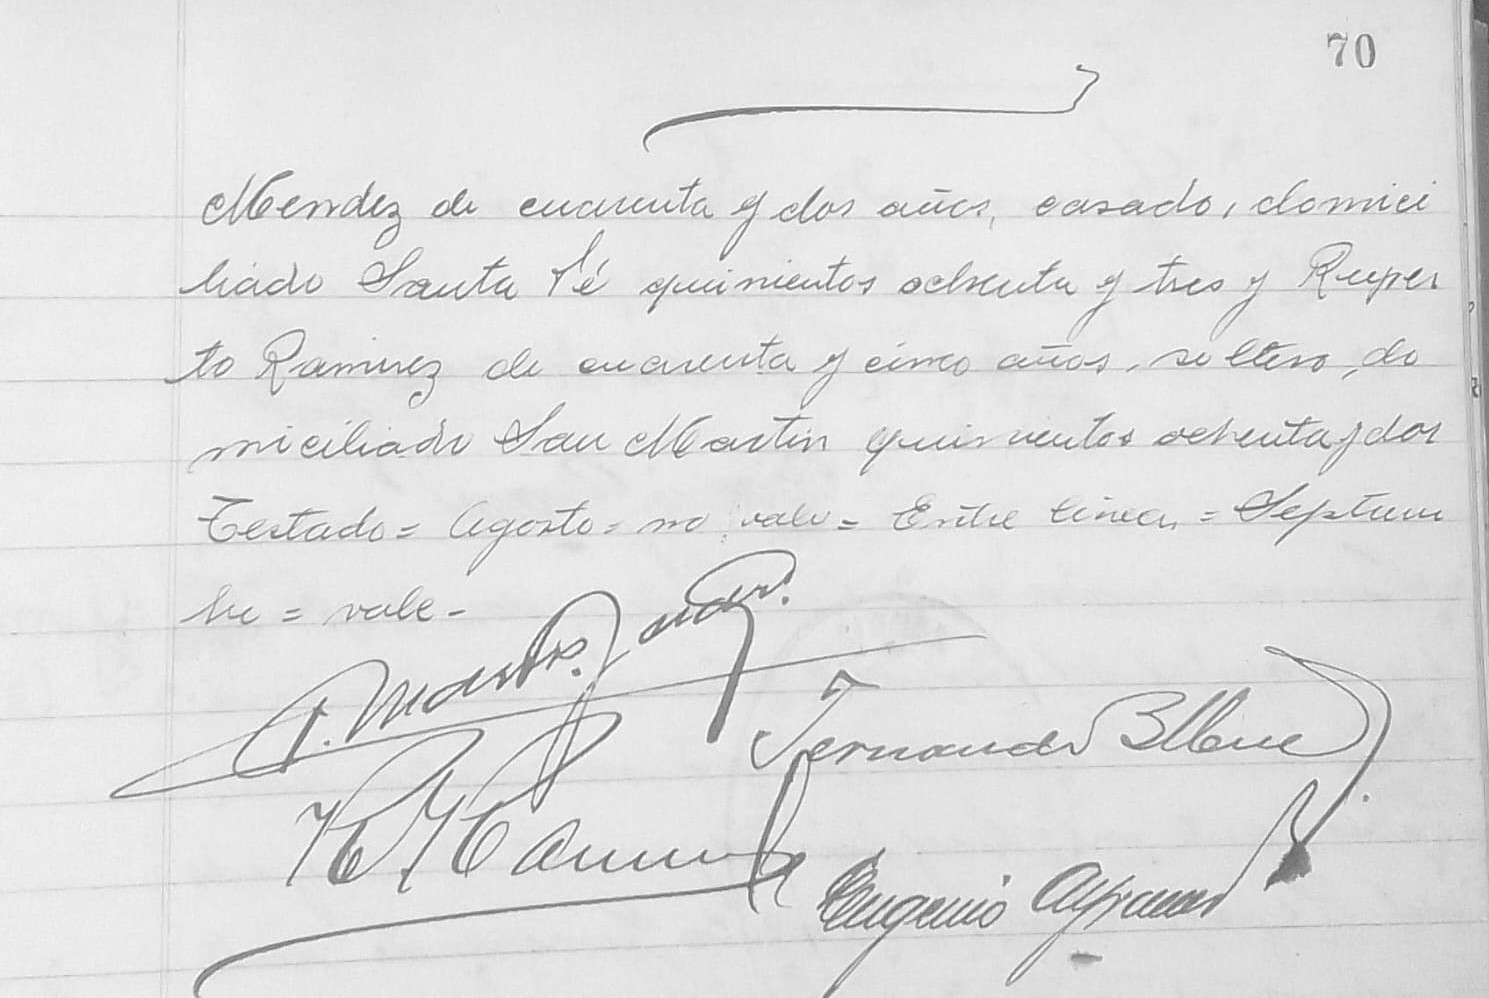 70
Mendez de cuarenta y dos años, casado, domici
liado Santa Fé quinientos ochenta y tres y Ruper
to Ramirez de cuarenta y cinco años, soltero, do
miciliado San Martin quinientos ochenta y dos
Testado = Agosto = no vale = Entre lineas = Septiem
bre = vale -
Fernando
Eugenio